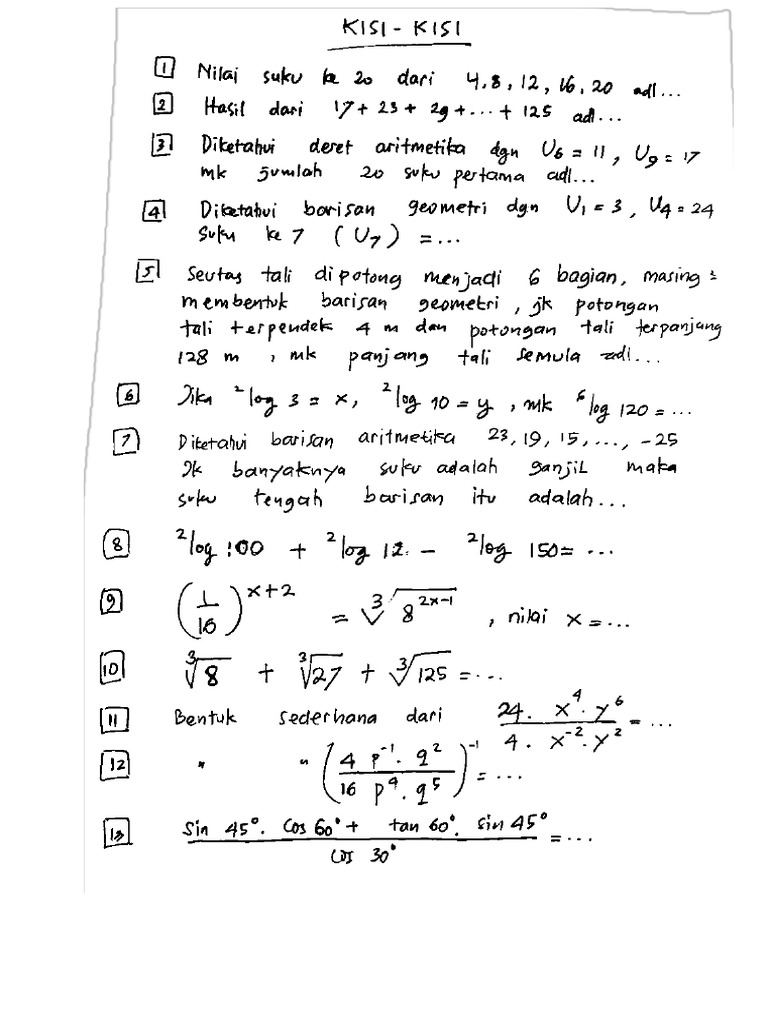 KISI - KISI
1 Nilai suku ke 20 dari 4, 8, 12, 16, 20 adl...
2 Hasil dari 17 + 23 + 29 + ... + 125 adl...
3 Diketahui deret aritmetika dgn U6 = 11, U9 = 17
mk jumlah 20 suku pertama adl...
4 Diketahui barisan geometri dgn U1 = 3, U4 = 24
suku ke 7 (U7) = ...
5 Seutas tali dipotong menjadi 6 bagian, masing =
membentuk barisan geometri, jk potongan
tali terpendek 4 m dan potongan tali terpanjang
128 m, mk panjang tali semula adl...
6 Jika ²log 3 = x, ²log 10 = y, mk ⁶log 120 = ...
7 Diketahui barisan aritmetika 23, 19, 15, ..., -25
Jk banyaknya suku adalah ganjil maka
suku tengah barisan itu adalah...
8 ²log 100 + ²log 12 - ²log 150 = ...
9 (1/16)^(x+2) = ³√8^(2x-1), nilai x = ...
10 ³√8 + ³√27 + ³√125 = ...
11 Bentuk sederhana dari 24. x⁴. y⁶ / 4. x⁻². y² = ...
12 " " (4 p⁻¹. q² / 16 p⁴. q⁵)⁻¹ = ...
13 sin 45°. cos 60° + tan 60°. sin 45° / cos 30° = ...